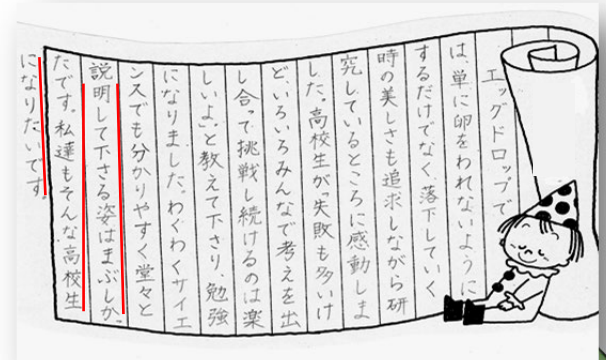 エッグドロップで
は、単に卵をわれないように
するだけでなく、落下していく
時の美しさも追求しながら研
究しているところに感動しま
した。高校生が「失敗も多いけ
ど、いろいろみんなで考えを出
し合って挑戦し続けるのは楽
しいよ」と教えて下さり、勉強
になりました。わくわくサイエ
ンスでも分かりやすく堂々と
説明して下さる姿はまぶしか
たです。私達もそんな高校生
になりたいです。